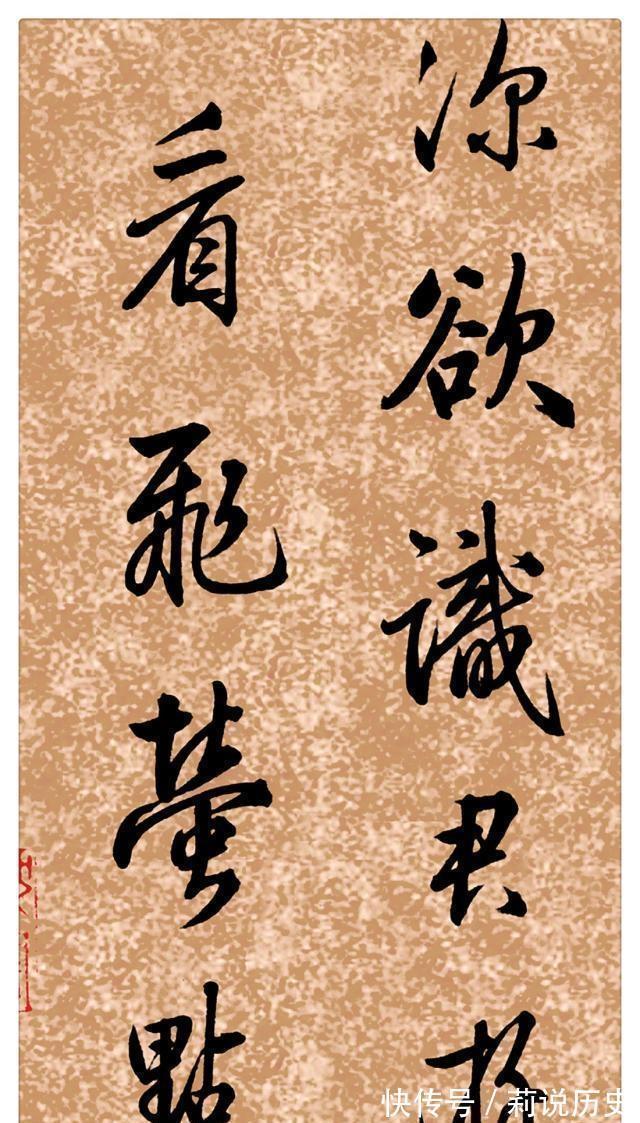 深欲識君
看飛螢點
快传号 / 莉说历史